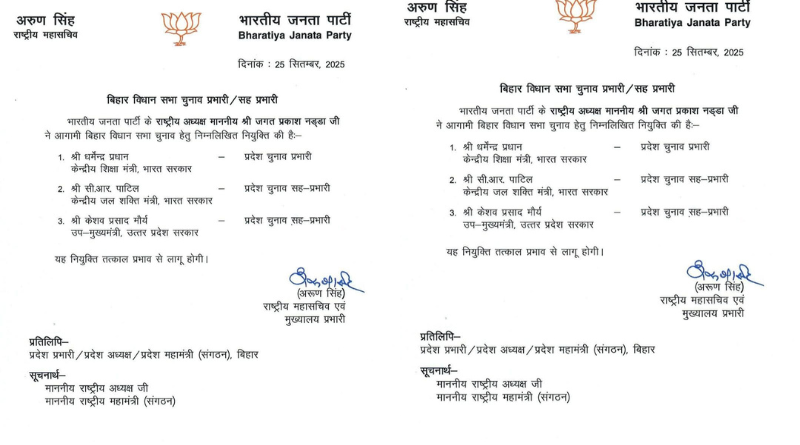 अरुण सिंह
राष्ट्रीय महासचिव
भारतीय जनता पार्टी
Bharatiya Janata Party
दिनांक : 25 सितम्बर, 2025
बिहार विधान सभा चुनाव प्रभारी/सह प्रभारी
भारतीय जनता पार्टी के राष्ट्रीय अध्यक्ष माननीय श्री जगत प्रकाश नड्डा जी
ने आगामी बिहार विधान सभा चुनाव हेतु निम्नलिखित नियुक्ति की है:–
1. श्री धर्मेन्द्र प्रधान – प्रदेश चुनाव प्रभारी
केन्द्रीय शिक्षा मंत्री, भारत सरकार
2. श्री सी.आर. पाटिल – प्रदेश चुनाव सह–प्रभारी
केन्द्रीय जल शक्ति मंत्री, भारत सरकार
3. श्री केशव प्रसाद मौर्य – प्रदेश चुनाव सह–प्रभारी
उप–मुख्यमंत्री, उत्तर प्रदेश सरकार
यह नियुक्ति तत्काल प्रभाव से लागू होगी।
(अरूण सिंह)
राष्ट्रीय महासचिव एवं
मुख्यालय प्रभारी
प्रतिलिपि–
प्रदेश प्रभारी/प्रदेश अध्यक्ष/प्रदेश महामंत्री (संगठन), बिहार
सूचनार्थ–
माननीय राष्ट्रीय अध्यक्ष जी
माननीय राष्ट्रीय महामंत्री (संगठन)
अरुण सिंह
राष्ट्रीय महासचिव
भारतीय जनता पार्टी
Bharatiya Janata Party
दिनांक : 25 सितम्बर, 2025
बिहार विधान सभा चुनाव प्रभारी/सह प्रभारी
भारतीय जनता पार्टी के राष्ट्रीय अध्यक्ष माननीय श्री जगत प्रकाश नड्डा जी
ने आगामी बिहार विधान सभा चुनाव हेतु निम्नलिखित नियुक्ति की है:–
1. श्री धर्मेन्द्र प्रधान – प्रदेश चुनाव प्रभारी
केन्द्रीय शिक्षा मंत्री, भारत सरकार
2. श्री सी.आर. पाटिल – प्रदेश चुनाव सह–प्रभारी
केन्द्रीय जल शक्ति मंत्री, भारत सरकार
3. श्री केशव प्रसाद मौर्य – प्रदेश चुनाव सह–प्रभारी
उप–मुख्यमंत्री, उत्तर प्रदेश सरकार
यह नियुक्ति तत्काल प्रभाव से लागू होगी।
(अरूण सिंह)
राष्ट्रीय महासचिव एवं
मुख्यालय प्रभारी
प्रतिलिपि–
प्रदेश प्रभारी/प्रदेश अध्यक्ष/प्रदेश महामंत्री (संगठन), बिहार
सूचनार्थ–
माननीय राष्ट्रीय अध्यक्ष जी
माननीय राष्ट्रीय महामंत्री (संगठन)